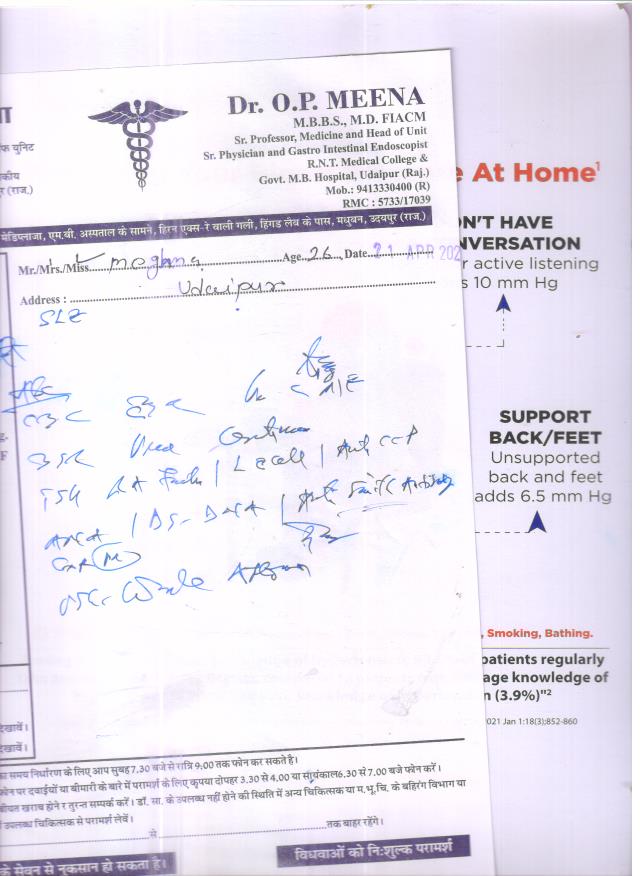 Dr. O.P. MEENA
M.B.B.S., M.D. FIACM
Sr. Professor, Medicine and Head of Unit
Sr. Physician and Gastro Intestinal Endoscopist
R.N.T. Medical College &
Govt. M.B. Hospital, Udaipur (Raj.)
Mob.: 9413330400 (R)
RMC : 5733/17039
मेडिप्लाजा, एम.बी. अस्पताल के सामने, हिरन एक्स-रे वाली गली, हिंगड लेब के पास, मधुबन, उदयपुर (राज.)
Mr./Mrs./Miss Meghna Age 26 Date 21 APR 202
Address : Udaipur
SLE
CBC
ESR Urea
TSH RA Factor | LE cell | Anti CCP
ANA | DS-DNA | Anti
CXR
USG Whole Abdomen
ा समय निर्धारण के लिए आप सुबह 7.30 बजे से रात्रि 9.00 तक फोन कर सकते है।
फोन पर दवाईयों या बीमारी के बारे में परामर्श के लिए कृपया दोपहर 3.30 से 4.00 या सांयकाल 6.30 से 7.00 बजे फोन करें।
बीयत खराब होने र तुरन्त सम्पर्क करें। डॉ. सा. के उपलब्ध नहीं होने की स्थिति में अन्य चिकित्सक या म.भू.चि. के बहिरंग विभाग या
उपलब्ध चिकित्सक से परामर्श लेवें।
से तक बाहर रहेंगे।
के सेवन से नुकसान हो सकता है।
विधवाओं को नि:शुल्क परामर्श
फ युनिट
कीय
र (राज.)
देखावें।
देखावें।
e At Home1
ON'T HAVE
NVERSATION
r active listening
s 10 mm Hg
SUPPORT
BACK/FEET
Unsupported
back and feet
adds 6.5 mm Hg
, Smoking, Bathing.
patients regularly
age knowledge of
n (3.9%)"2
2021 Jan 1:18(3);852-860